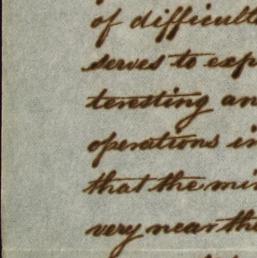 of difficult
serves to exp
teresting an
operations in
that the min
very near the